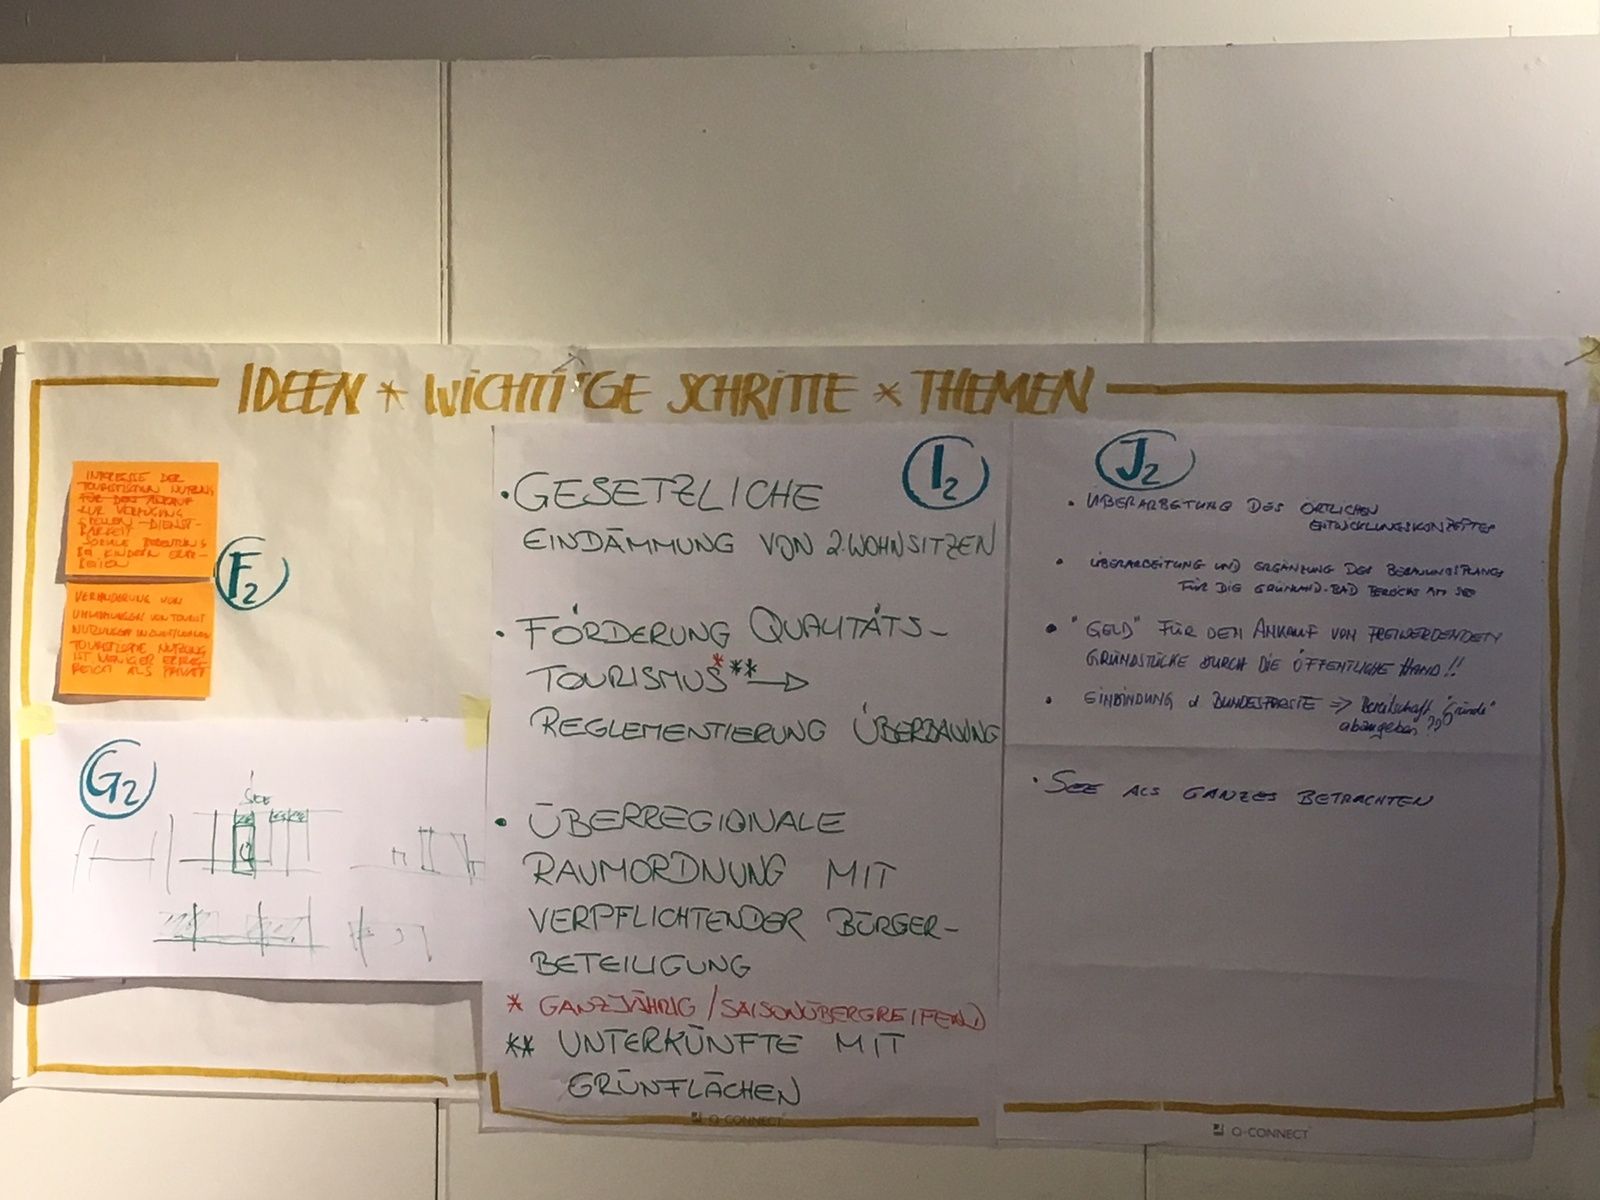 IDEEN * WICHTIGE SCHRITTE * THEMEN
INTERESSE DER
TOURISTISCHEN NUTZUNG
FÜR DEN ANKAUF
ZUR VERFÜGUNG
STELLEN - DIENST-
BARKEIT
SOZIALE
BEI KINDERN
F2
VERHINDERUNG VON
UMWIDMUNGEN VON TOURIST
NUTZUNGEN IN
TOURISTISCHE NUTZUNG
IST WENIGER
REICH ALS PRIVAT
G2
SEE
I2
• GESETZLICHE
EINDÄMMUNG VON 2.WOHNSITZEN
• FÖRDERUNG QUALITÄTS-
TOURISMUS* **→
REGLEMENTIERUNG ÜBERBAUUNG
• ÜBERREGIONALE
RAUMORDNUNG MIT
VERPFLICHTENDER BÜRGER-
BETEILIGUNG
* GANZJÄHRIG / SAISONÜBERGREIFEND
** UNTERKÜNFTE MIT
GRÜNFLÄCHEN
Q-CONNECT
J2
• ÜBERARBEITUNG DES ÖRTLICHEN
ENTWICKLUNGSKONZEPTES
• ÜBERARBEITUNG UND ERGÄNZUNG DES BEBAUUNGSPLANS
FÜR DIE GRÜNLAND-BAD BEREICHE AM SEE
• "GELD" FÜR DEN ANKAUF VON FREIWERDENDEN
GRUNDSTÜCKE DURCH DIE ÖFFENTLICHE HAND!!
• EINBINDUNG d BUNDESFORSTE => Bereitschaft "Gründe"
abzugeben ??
• SEE ALS GANZES BETRACHTEN
Q-CONNECT